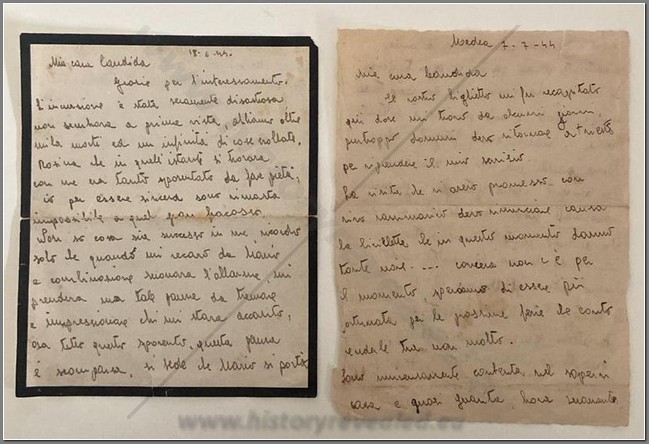 18-6-44.
Mia cara Candida
Grazie per l'interessamento.
L'incursione è stata veramente disastrosa
non sembrava a prima vista, abbiamo oltre
mila morti ed un infinità di case crollate.
Rosina che in quell'istante si trovava
con me era tanto spaventata da far pietà,
io per essere sincera sono rimasta
impossibile a quel gran fracasso.
Non so cosa sia successo in me ricordo
solo che quando mi recavo da Mario
e combinazione suonava l'allarme, mi
prendeva una tale paura da tremare
e impressionare chi mi stava accanto,
ora tutto questo spavento, questa paura
è scomparsa, si vede che Mario si portò
Medea 7-7-44.
Mia cara Candida
Il vostro biglietto mi fu recapitato
qui dove mi trovo da alcuni giorni,
purtroppo domani devo ritornare a Trieste
per riprendere il mio servizio.
La visita che vi avevo promesso con
vivo rammarico devo rinunciare, causa
la bicicletta che in questo momento fanno
tante .... non c'è per
il momento, speriamo di essere più
fortunata per le prossime ferie che conto
tu non molto.
Sono immensamente contenta nel sapervi
casa e quasi guarita
www.historyrevealed.eu